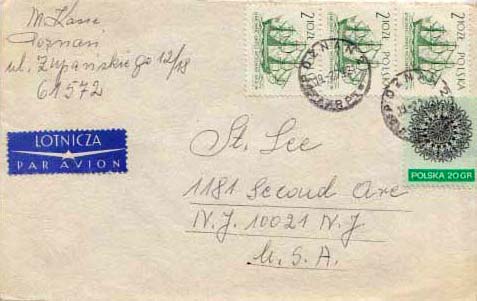 M. Kani
Poznań
ul. Żupańskiego 12/18
61572
LOTNICZA
PAR AVION
2,10 ZŁ
POLSKA
2,10 ZŁ
POLSKA
2,10 ZŁ
POLSKA
POZNAŃ 2
POZNAŃ 2
POLSKA 20 GR
St. Lee
1181 Second Ave
N.J. 10021 N.J
U.S.A.